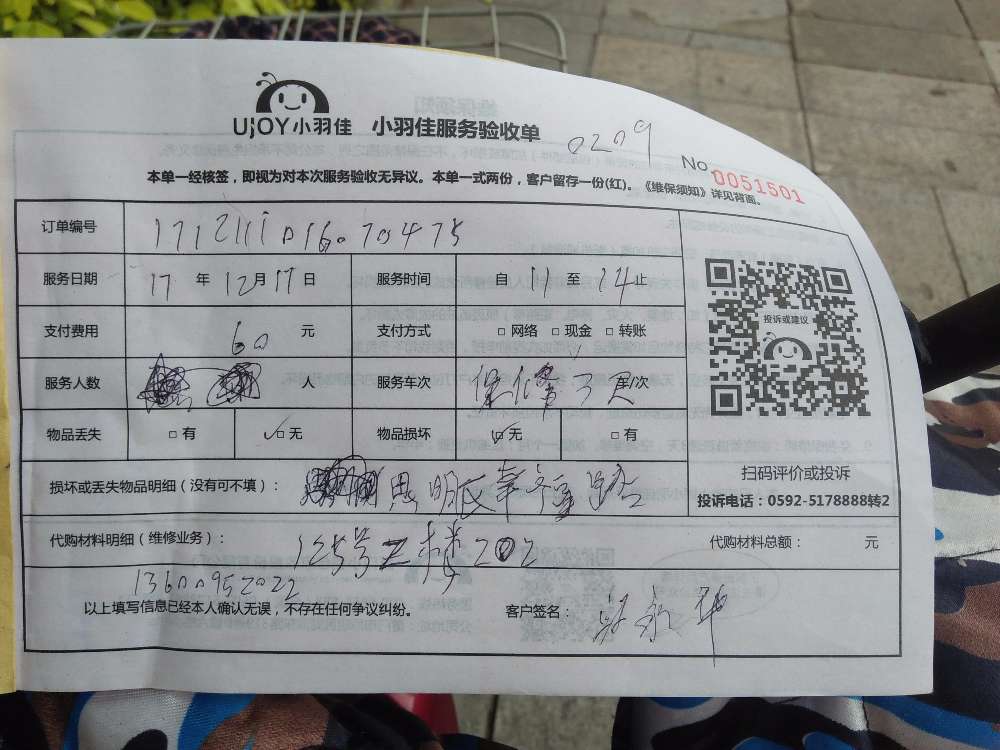 UJOY小羽佳 小羽佳服务验收单 0209 No 0051501
本单一经核签，即视为对本次服务验收无异议。本单一式两份，客户留存一份(红)。《维保须知》详见背面。
订单编号
服务日期 17 年 12月17日 服务时间 自 11 至 14 止
支付费用 60 元 支付方式 □网络 □现金 □转账
服务人数 人 服务车次 车/次
物品丢失 □有 ☑无 物品损坏 ☑无 □有
投诉或建议
扫码评价或投诉
投诉电话：0592-5178888转2
损坏或丢失物品明细（没有可不填）： 思明区
代购材料明细（维修业务）： 125号 202 代购材料总额： 元
13600952022
以上填写信息已经本人确认无误，不存在任何争议纠纷。 客户签名：